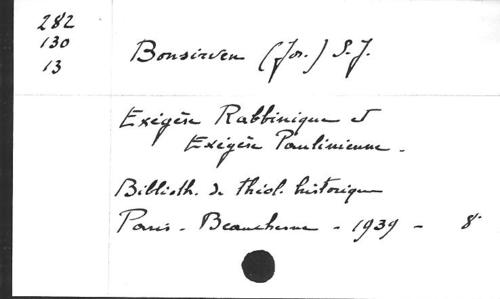 282
130
13
Bonsirven (Jos.) S.J.
Exégèse Rabbinique et
Exégèse Paulinienne.
Biblioth. de théol. historique
Paris - Beauchesne - 1939 - 8°